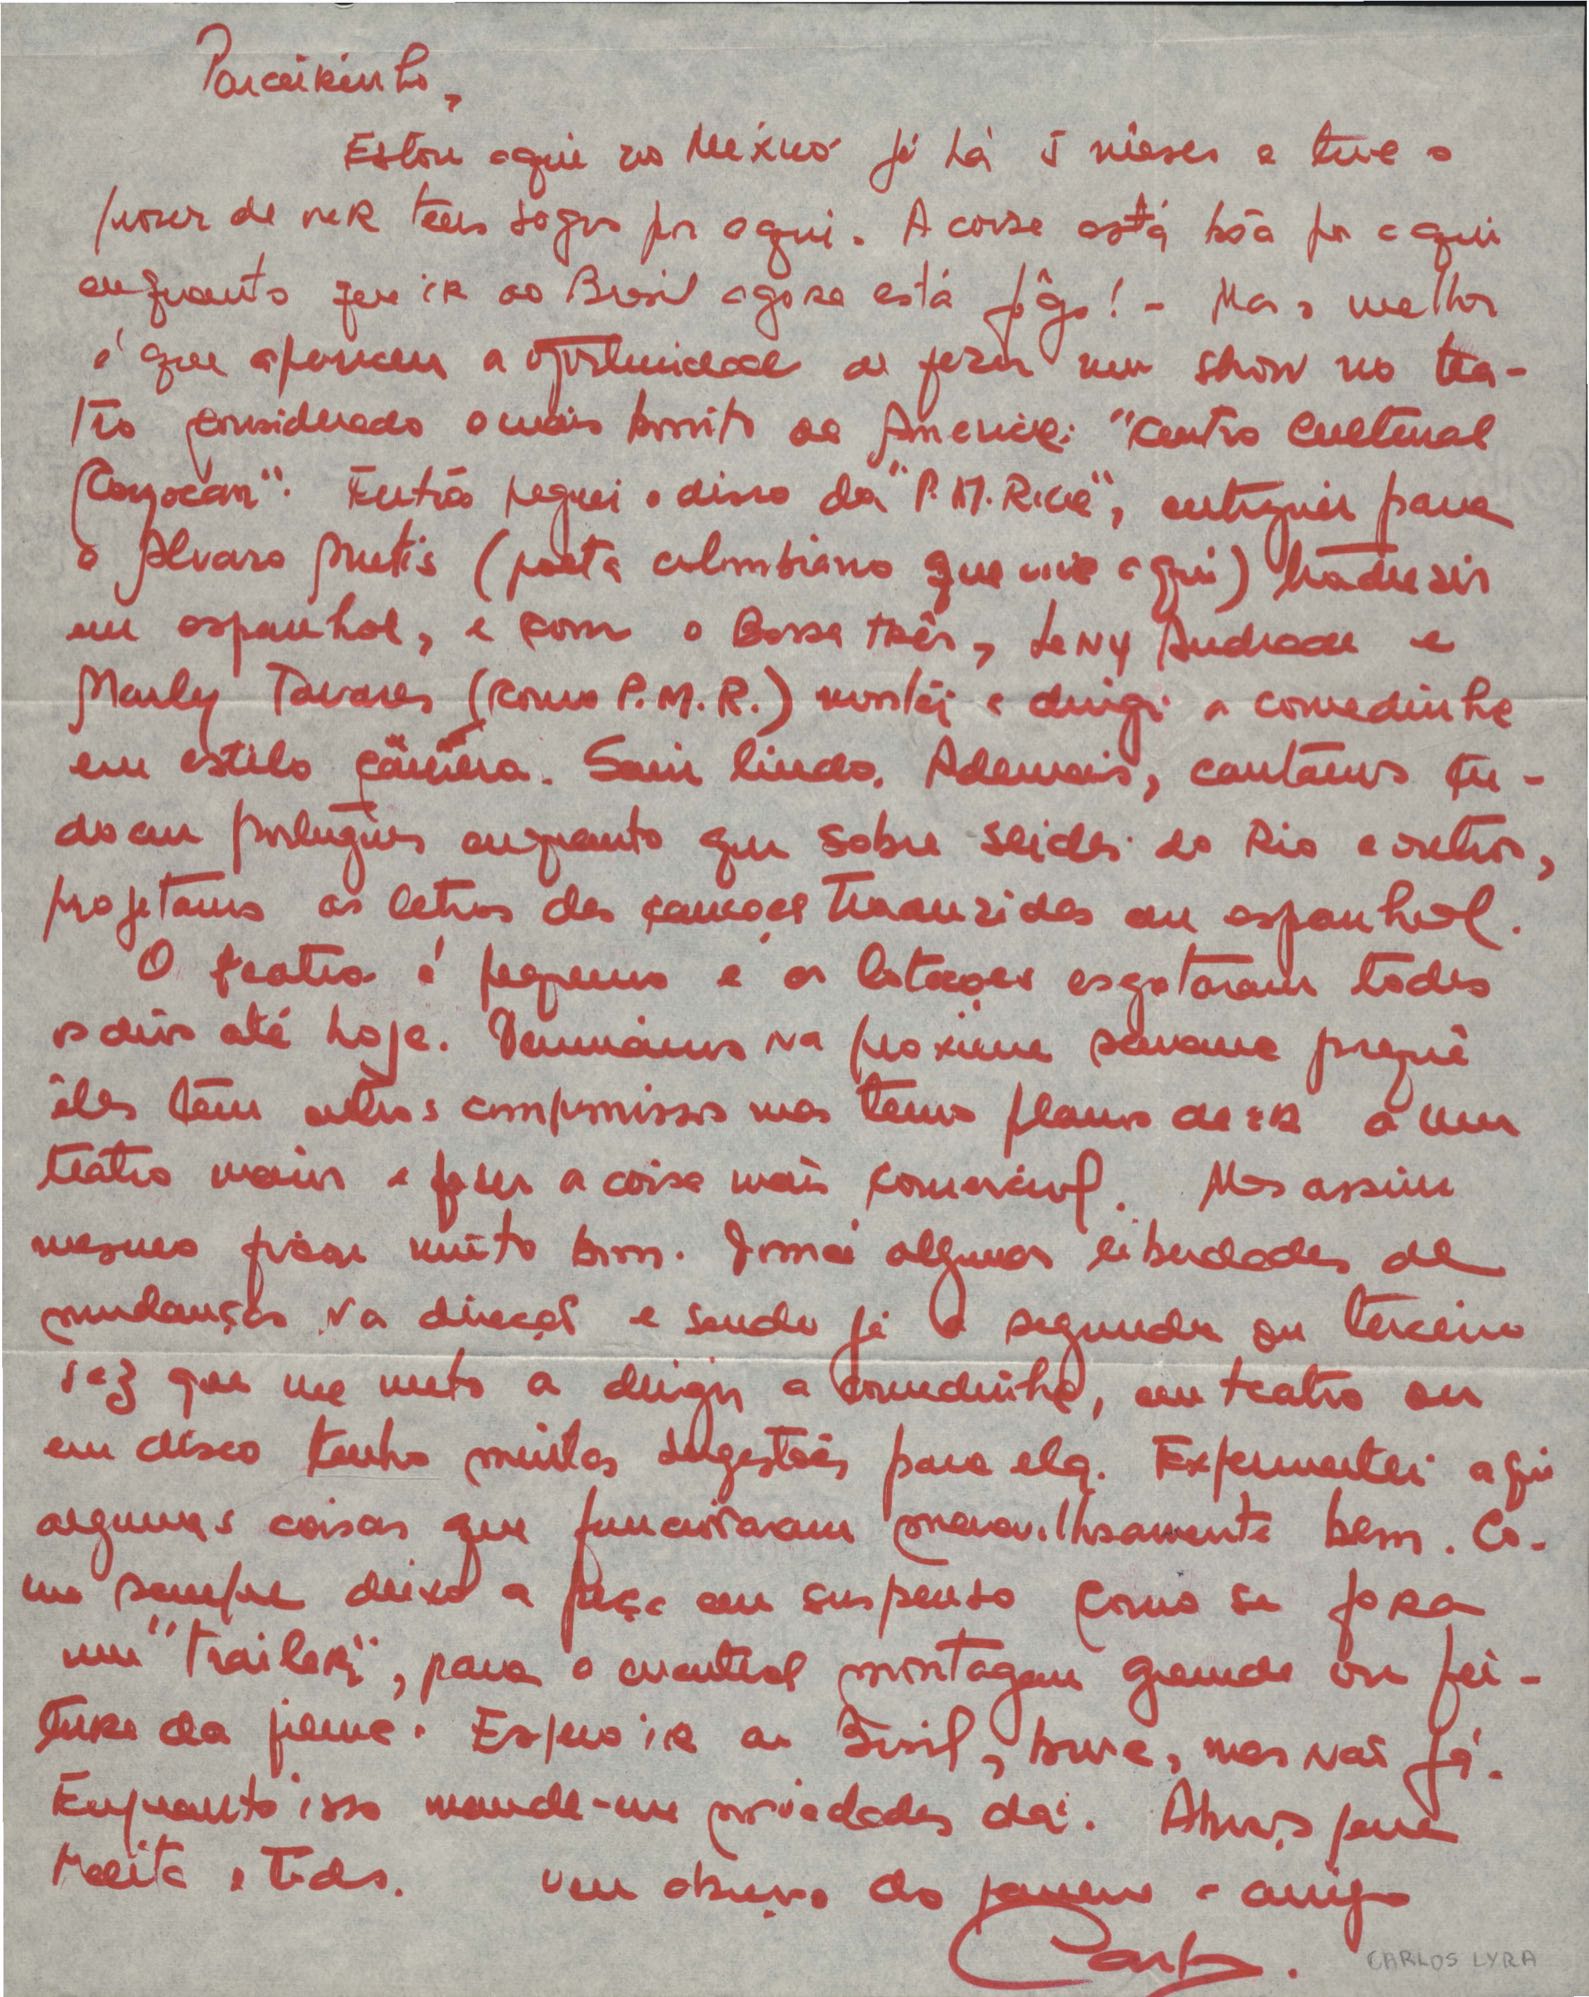 Parceirinho,
Estou aqui no México já há 5 mêses e tive o
prazer de veR teus sogros por aqui. A coisa está bôa por aqui
enquanto que iR ao Brasil agora está fôgo! - Mas o melhor
é que apareceu a oportunidade de fazer um show no tea-
tro considerado o mais bonito da America: "Centro Cultural
Coyoacán". Então peguei o disco da "P.M.Rica", entreguei para
o Alvaro Mutis (poeta colombiano que vive aqui) traduzir
em espanhol, e com o Bossa três, LeNY Andrade e
Marly Tavares (como P.M.R.) montei e dirigi a comedinha
em estilo câmera. Saiu lindo. Ademais, cantamos tu-
do em português enquanto que sobre slides do Rio e outros,
projetamos as letras das canções traduzidas em espanhol.
O teatro é pequeno e as lotações esgotaram todos
os dias até hoje. Terminamos na proxima semana porquê
êles têm outros compromissos mas temos planos de iR a um
teatro maior e fazer a coisa mais comercial. Mas assim
mesmo ficou muito bom. Tomei algumas liberdades de
mudanças na direçaõ e sendo já a segunda ou terceira
vez que me meto a dirigir a comedinha, em teatro ou
em disco tenho muitas sugestões para ela. Experimentei aqui
algumas coisas que funcionaram maravilhosamente bem. Co-
mo sempre deixo a peça em suspenso como se fora
um "trailer", para a eventual montagem grande ou fei-
tura da filme. Espero iR ao Brasil, breve, mas naõ já.
Enquanto isso mande-me novidades daí. Abraços para
e todos. um abraço do parceiro e amigo
Carlos.
CARLOS LYRA